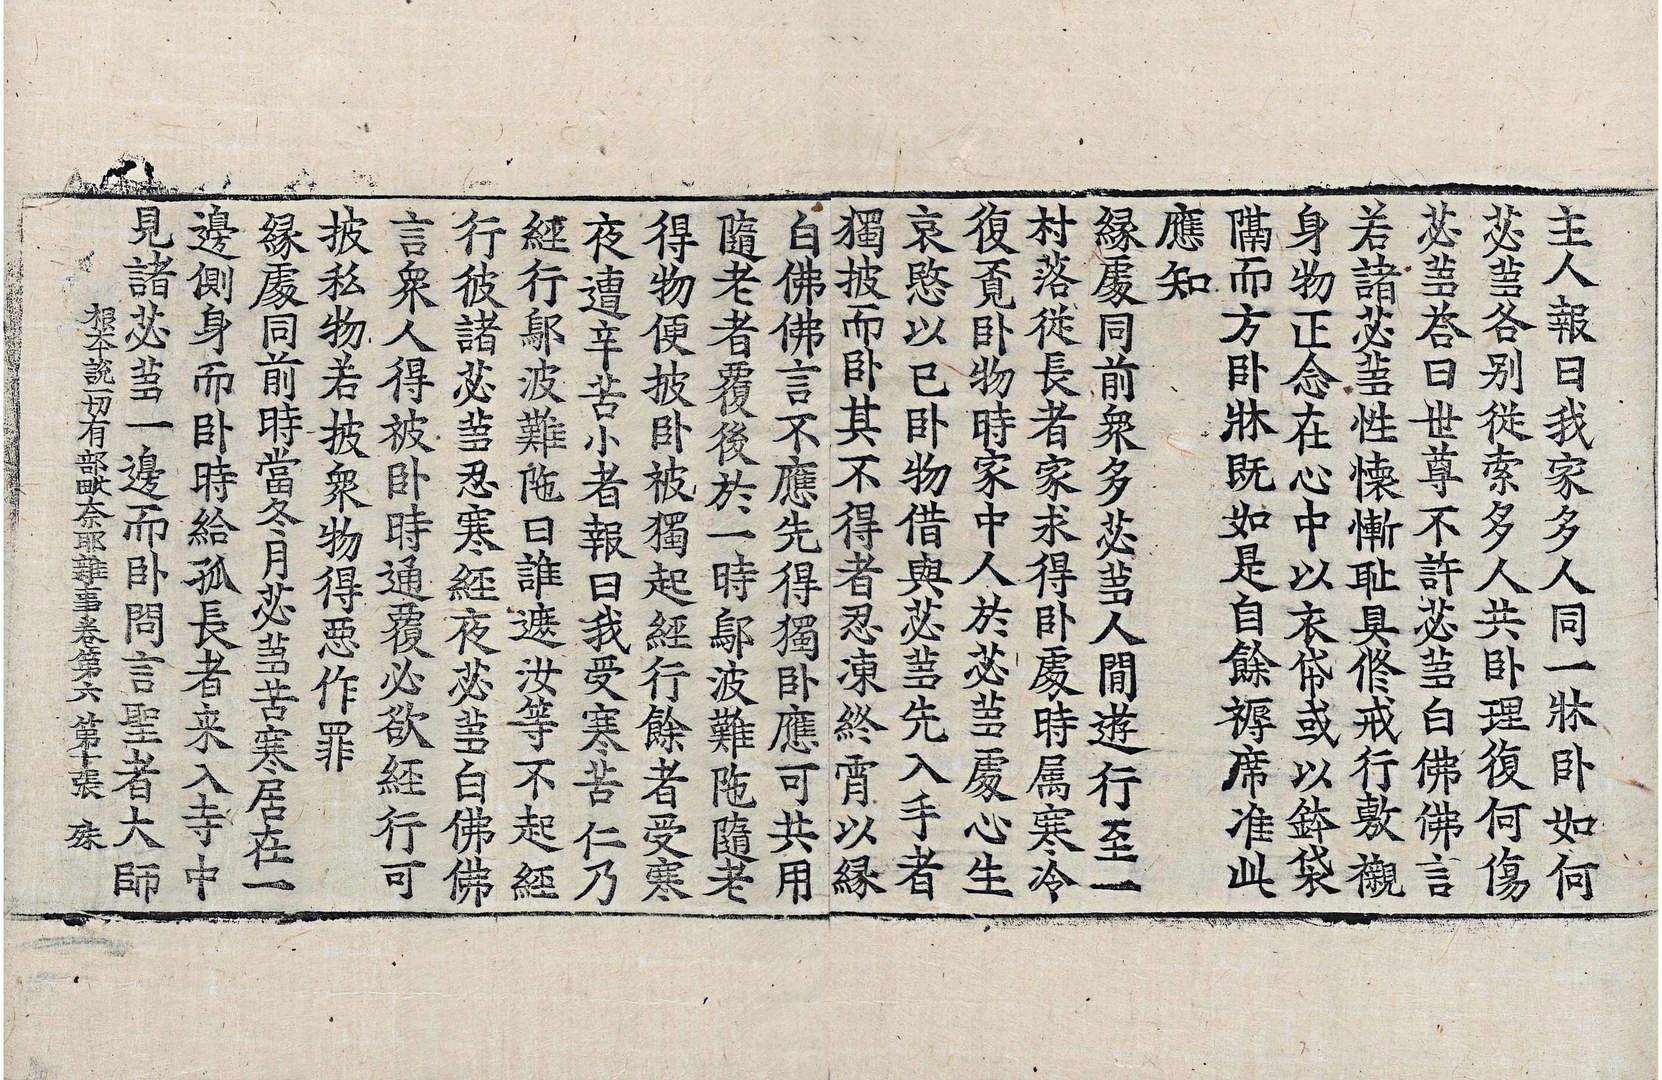 主人報曰我家多人同一牀卧如何
苾蒭各别從索多人共卧理復何傷
苾蒭荅曰世尊不許苾蒭白佛佛言
若諸苾蒭性懷慚耻具修戒行敷襯
身物正念在心中以衣帒或以鉢袋
隔而方卧牀既如是自餘褥席准此
應知
縁處同前衆多苾蒭人閒遊行至一
村落從長者家求得卧處時属寒冷
復覔卧物時家中人於苾蒭處心生
哀愍以已卧物借與苾蒭先入手者
獨披而卧其不得者忍凍終宵以縁
白佛佛言不應先得獨卧應可共用
隨老者覆後於一時鄔波難陁隨老
得物便披卧被獨起經行餘者受寒
夜遭辛苦小者報曰我受寒苦仁乃
經行鄔波難陁曰誰遮汝等不起經
行彼諸苾蒭忍寒經夜苾蒭白佛佛
言衆人得被卧時通覆必欲經行可
披私物若披衆物得惡作罪
縁處同前時當冬月苾蒭苦寒居在一
邊側身而卧時給孤長者来入寺中
見諸苾蒭一邊而卧問言聖者大師
根本說一切有部毗奈耶雜事卷第六 第十張